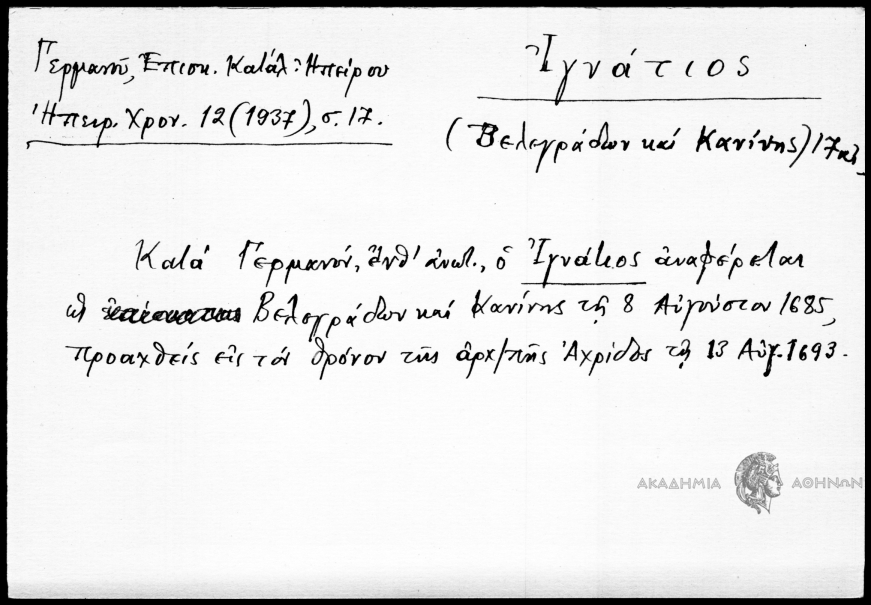 Γερμανοῦ, Ἐπισκ. Κατάλ. Ἠπείρου
Ἠπειρ. Χρον. 12 (1937), σ. 17.
Ἰγνάτιος
(Βελεγράδων καί Κανίνης) 17 αἰ.
Κατά Γερμανόν, ἔνθ' ἀνωτ., ὁ Ἰγνάτιος ἀναφέρεται
ὡς Βελεγράδων καί Κανίνης τῇ 8 Αὐγούστου 1685,
προαχθείς εἰς τόν θρόνον τῆς ἀρχ/πῆς Ἀχρίδος τῇ 13 Αὐγ. 1693.
ΑΚΑΔΗΜΙΑ ΑΘΗΝΩΝ